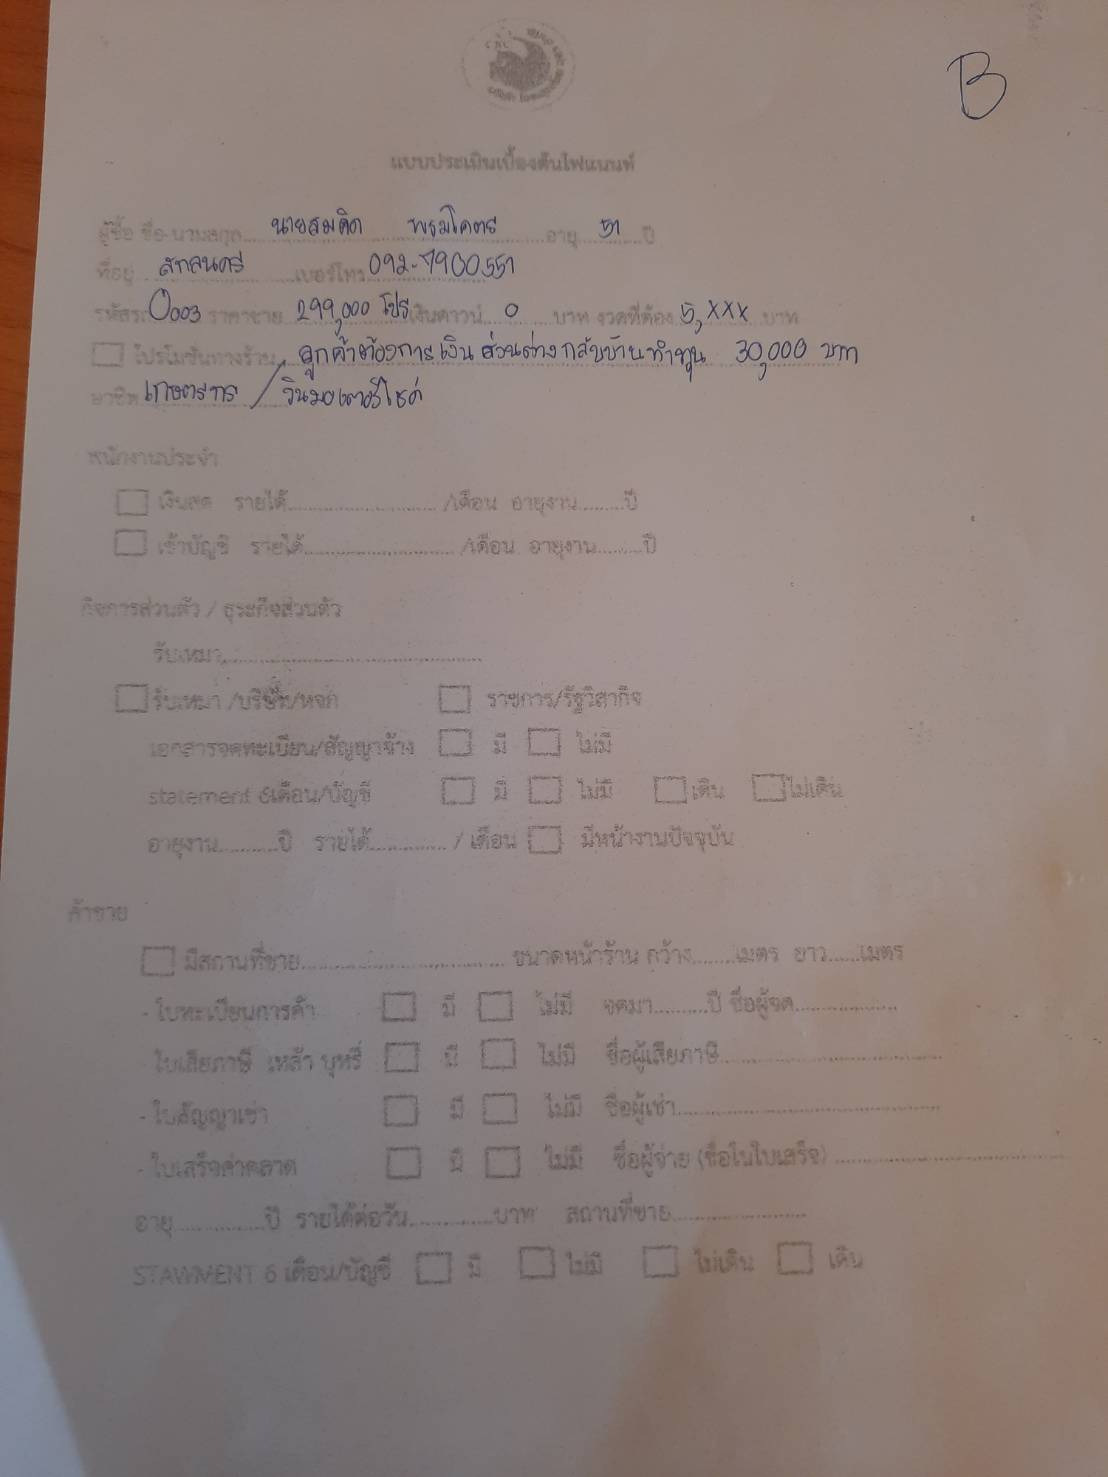 B
แบบประเมินเบื้องต้นไฟแนนท์
ผู้ซื้อ ชื่อ-นามสกุล นายสมคิด พรมโคตร อายุ 51 ปี
ที่อยู่ สกลนคร เบอร์โทร 092-7900551
รหัสรถ 0003 ราคาขาย 299,000 โปร เงินดาวน์ 0 บาท งวดที่ต้อง 5,xxx บาท
โปรโมชั่นทางร้าน ลูกค้าต้องการเงินส่วนต่างกลับบ้านทำทุน 30,000 บาท
อาชีพ เกษตรกร / วินมอเตอร์ไซค์
พนักงานประจำ
เงินสด รายได้ /เดือน อายุงาน ปี
เข้าบัญชี รายได้ /เดือน อายุงาน ปี
กิจการส่วนตัว / ธุระกิจส่วนตัว
รับเหมา
รับเหมา /บริษัท/หจก ราชการ/รัฐวิสากิจ
เอกสารจดทะเบียน/สัญญาจ้าง มี ไม่มี
statement 6เดือน/บัญชี มี ไม่มี เดิน ไม่เดิน
อายุงาน ปี รายได้ / เดือน มีหน้างานปัจจุบัน
ค้าขาย
มีสถานที่ขาย ขนาดหน้าร้าน กว้าง เมตร ยาว เมตร
- ใบทะเบียนการค้า มี ไม่มี จดมา ปี ชื่อผู้จด
- ใบเสียภาษี เหล้า บุหรี่ มี ไม่มี ชื่อผู้เสียภาษี
- ใบสัญญาเช่า มี ไม่มี ชื่อผู้เช่า
- ใบเสร็จค่าตลาด มี ไม่มี ชื่อผู้จ่าย (ชื่อในใบเสร็จ)
อายุ ปี รายได้ต่อวัน บาท สถานที่ขาย
STAWMENT 6 เดือน/บัญชี มี ไม่มี ไม่เดิน เดิน